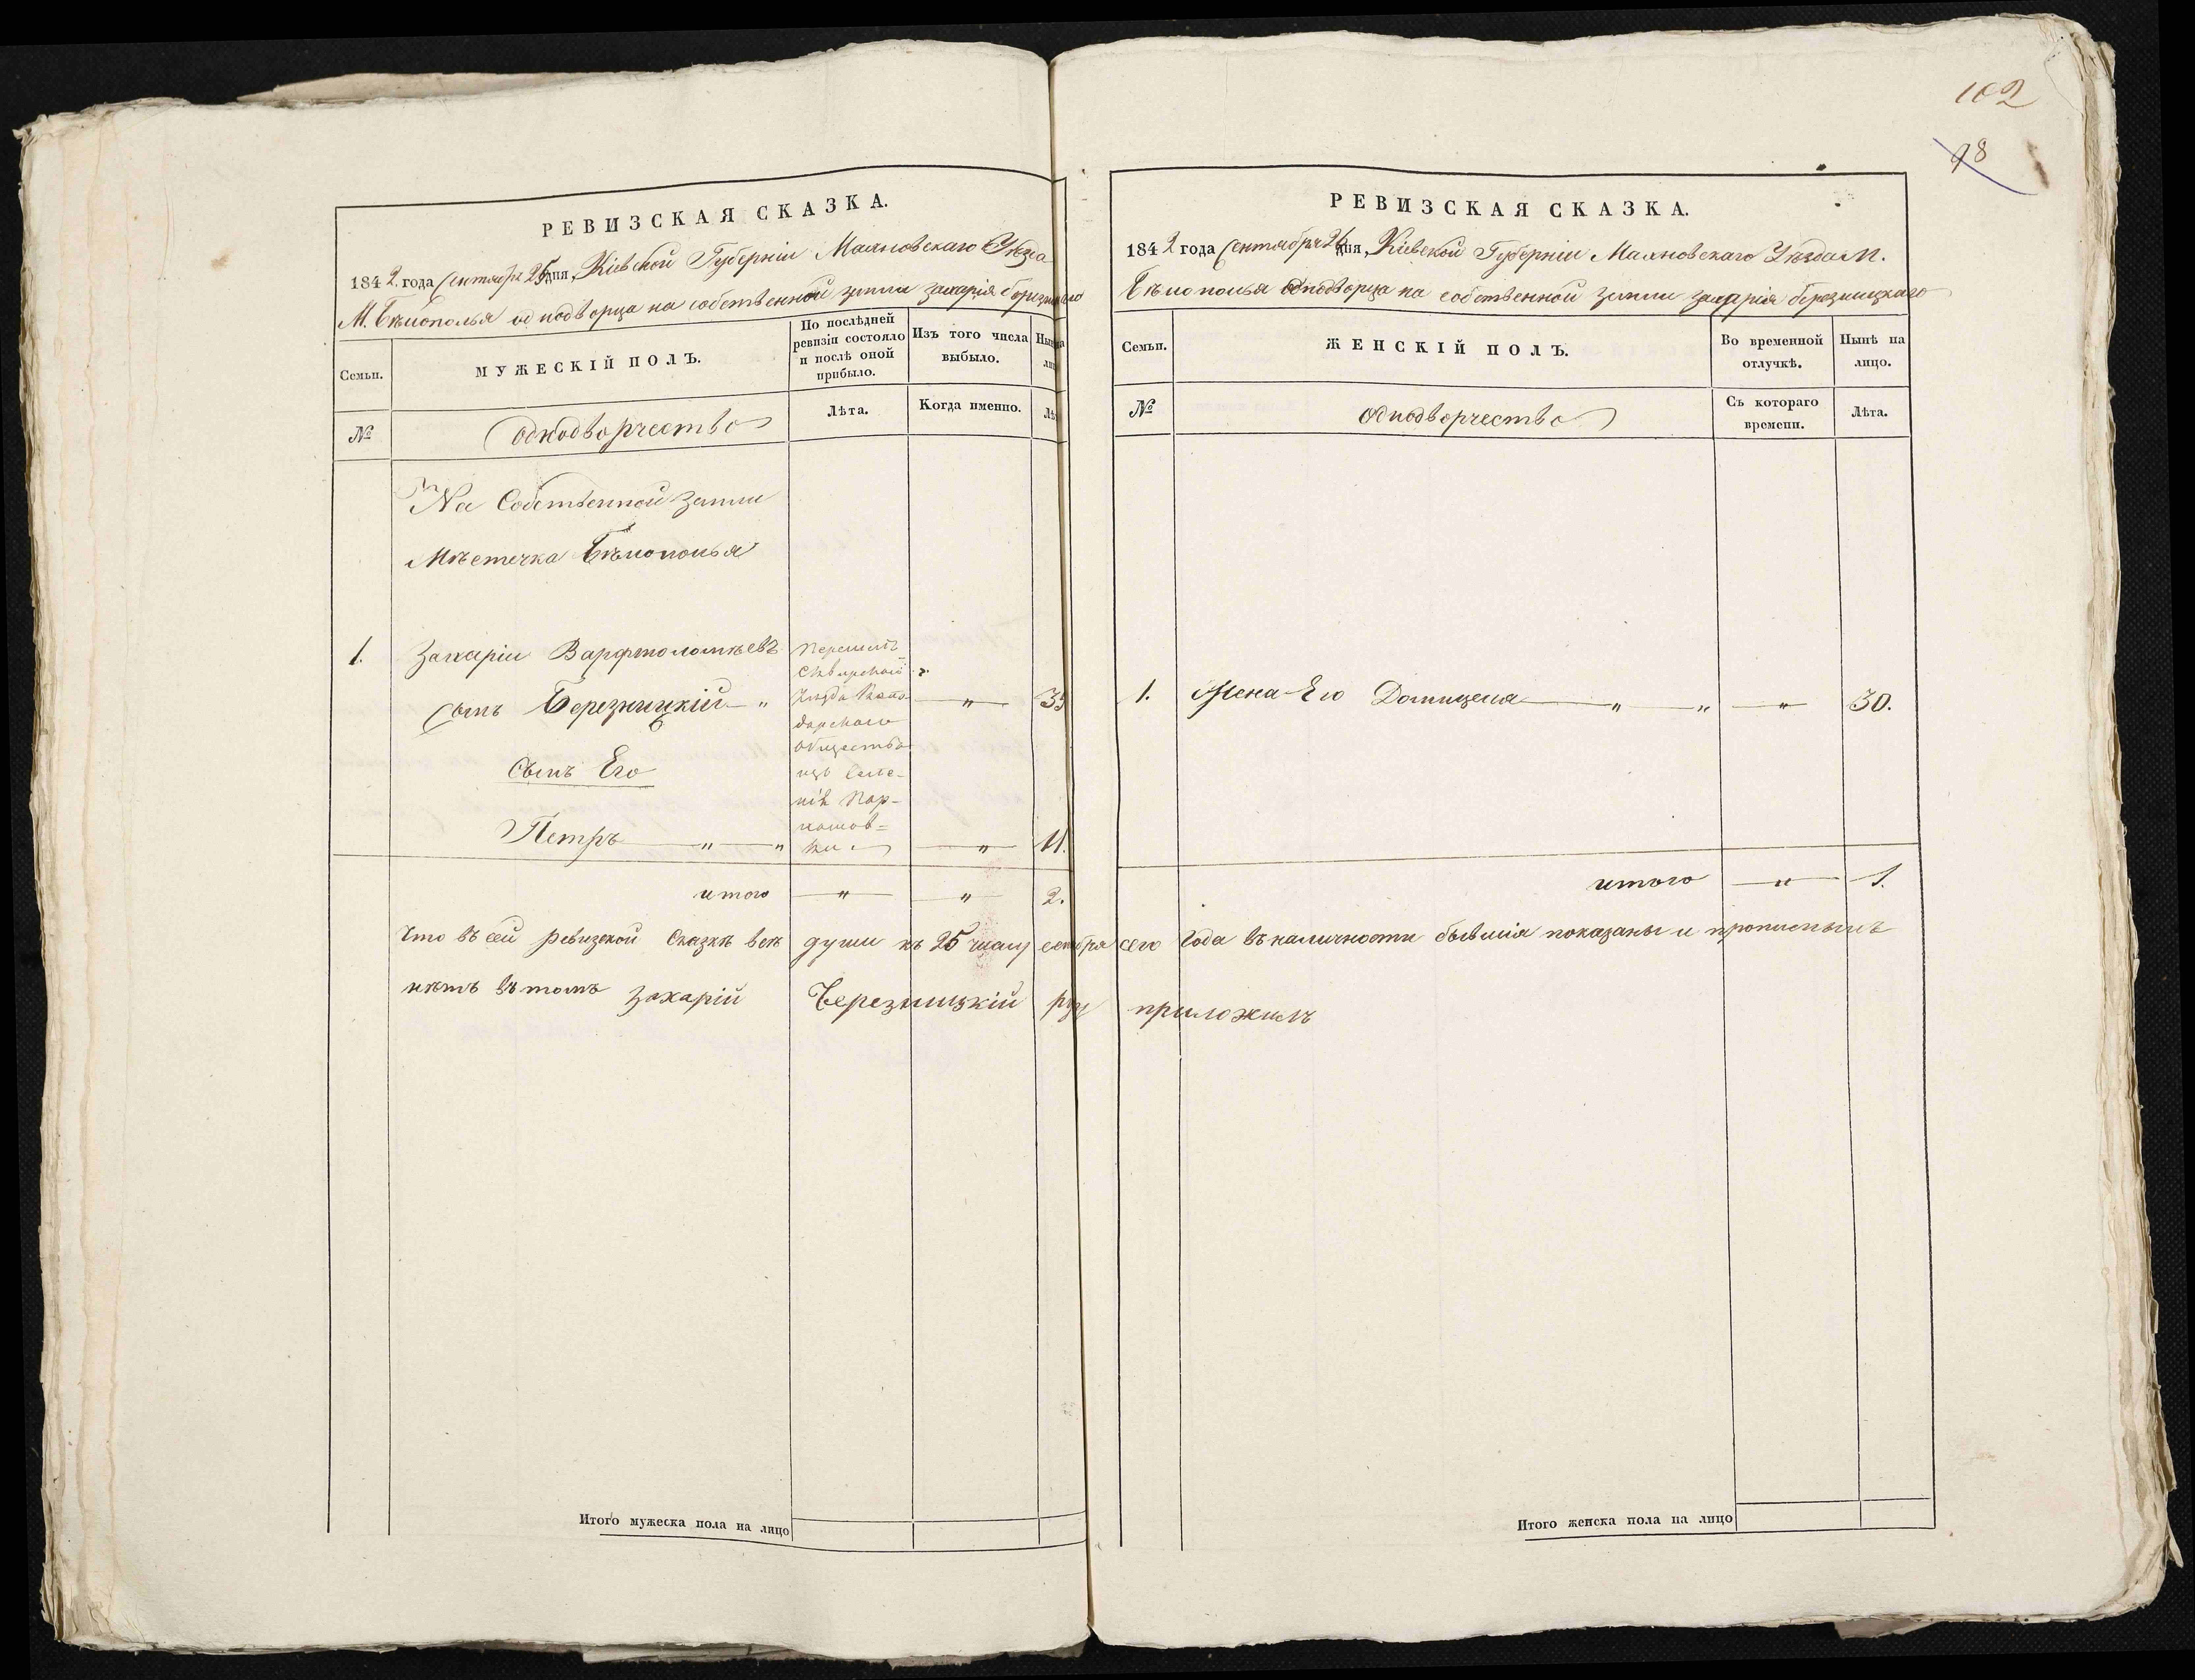 102
98
РЕВИЗСКАЯ СКАЗКА.
1842. года Сентября 25 дня, Кіевской Губерніи Махновскаго Уѣзда
М. Бѣлополья однодворца на собственной земли Захарія Березницкаго
Семьи.
МУЖЕСКІЙ ПОЛЪ.
По послѣдней ревизіи состояло и послѣ оной прибыло.
Изъ того числа выбыло.
Нынѣ на лицо
№
Однодворчество
Лѣта.
Когда именно.
Лѣ
На Собственной земли
Мѣстечка Бѣлополья
1. Захаріи Варфоломѣевъ
сынъ Березницкій " — " 35
Перешелъ
Сквирскаго
Уѣзда
общества
изъ Селе-
нія
ки
Сынъ Его
Петръ — " — " — " — 11.
итого — " — " — 2.
РЕВИЗСКАЯ СКАЗКА.
1842 года Сентября 26 дня, Кіевской Губерніи Махновскаго Уѣзда М.
Бѣлополья Однодворца на собственной земли Захарія Березницкаго
Семьи.
ЖЕНСКІЙ ПОЛЪ.
Во временной отлучкѣ.
Нынѣ на лицо.
№
Однодворчество
Съ котораго времени.
Лѣта.
1. Жена Его Домицеля — " — " — " — 30.
итого — " — 1.
Что въ сей ревизской Сказкѣ всѣ души къ 25 числу сентября сего Года въ наличности бывшія показаны и прописныхъ
нѣтъ въ томъ Захарій Березницкій руку приложилъ
Итого мужеска пола на лицо
Итого женска пола на лицо